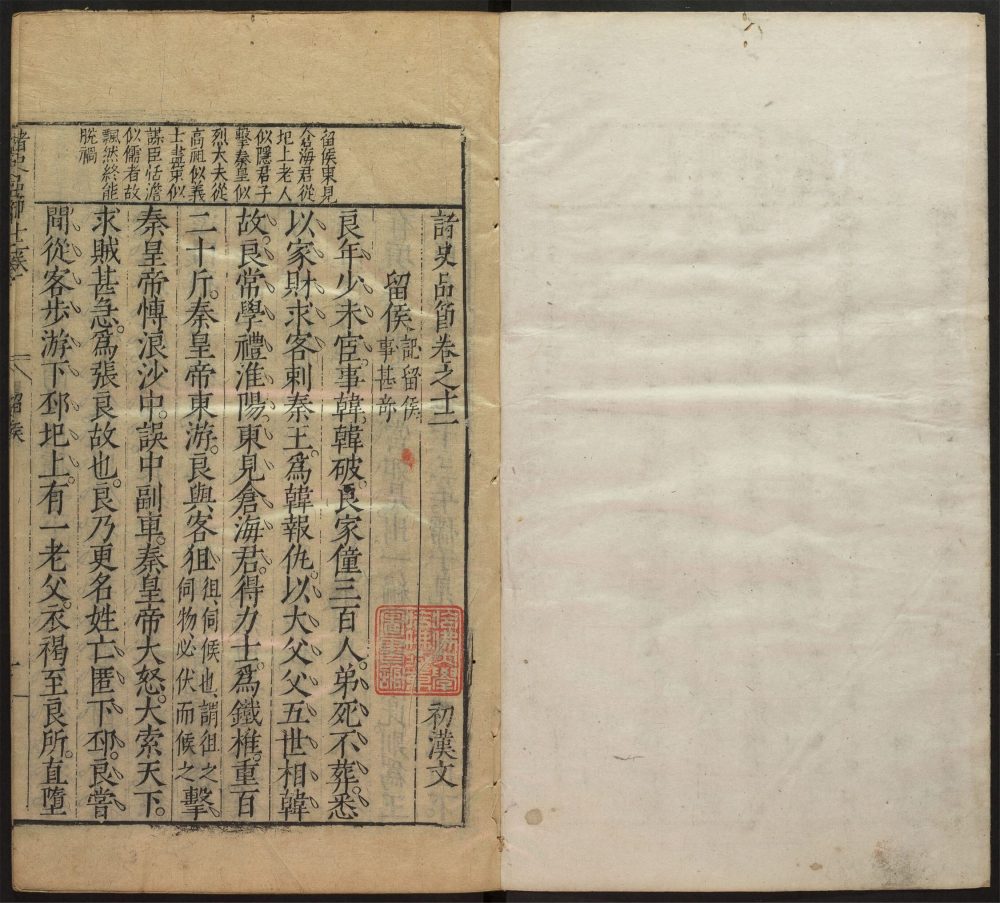 留侯東見
倉海君從
圯上老人
似隱君子
擊秦皇似
烈丈夫從
高祖似義
士盡策似
謀臣恬澹
似儒者故
飄然終能
脫禍
諸史品節卷之十二
初漢文
留侯
記留侯
事甚奇
良年少未宦事韓。韓破。良家僮三百人。弟死不葬。悉
以家財求客刺秦王。爲韓報仇。以大父父五世相韓
故。良常學禮淮陽。東見倉海君。得力士。爲鐵椎。重百
二十斤。秦皇帝東游。良與客狙
狙、伺候也、謂狙之
伺物必伏而候之
擊
秦皇帝愽浪沙中。誤中副車。秦皇帝大怒。大索天下。
求賊甚急。爲張良故也。良乃更名姓亡匿下邳。良嘗
閒從客步游下邳圯上。有一老父。衣褐至良所。直墮
諸史品節十二卷
留侯
一